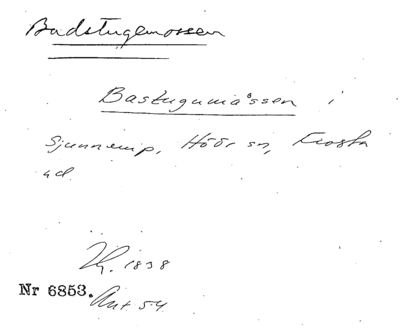 Badstugemossen
Bastugumåssen i
Sjunnerup, Höör sn, Frosta
hd.
Hg. 1838
Nr 6853. Ant 54